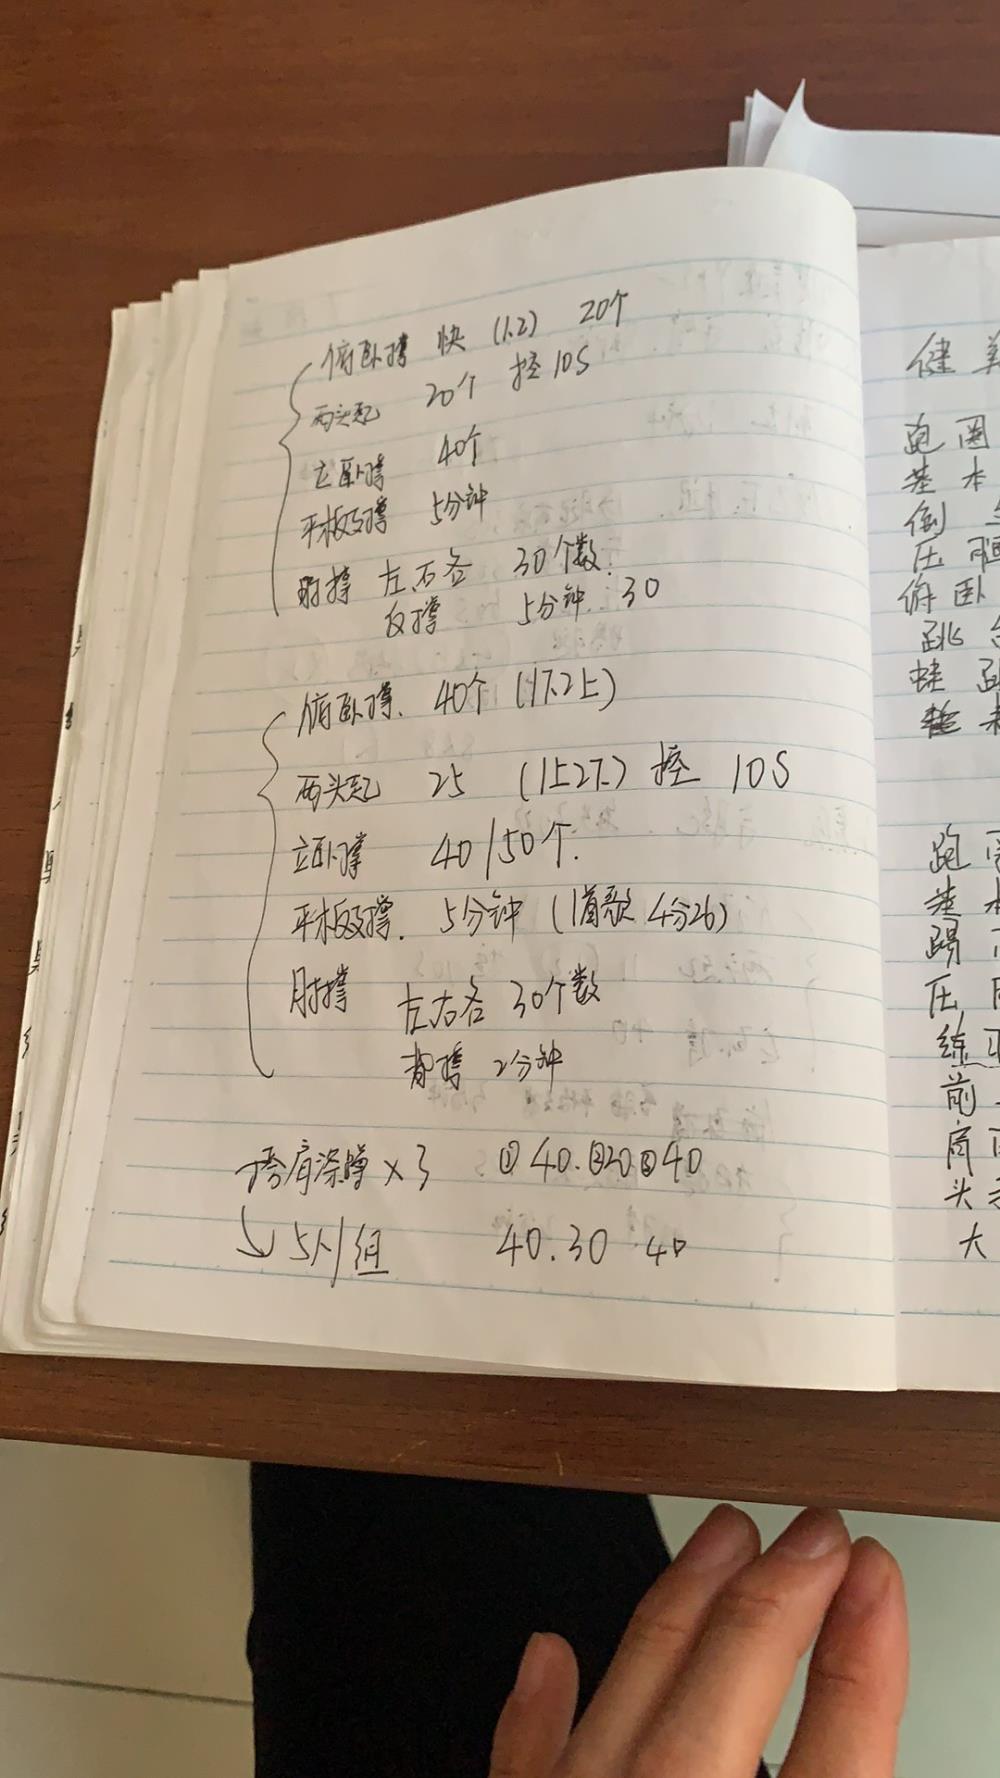 俯卧撑 快 (1.2) 20个
两头起 20个 控10S
立卧撑 40个
平板支撑 5分钟
肘撑 左右各 30个数
反撑 5分钟 30
俯卧撑. 40个 (1下.2上)
两头起 25 (1上2下) 控 10S
立卧撑 40/50个.
平板支撑. 5分钟 (1首歌 4分26)
肘撑 左右各 30个数
背撑 2分钟
挎肩深蹲×3 ①40.②20③40
↘5人/组 40.30 40
健美
跑圈
基本
倒
压
俯卧
跳
蛙跳
跑
基本
踢
压
练
前
肩
头
大